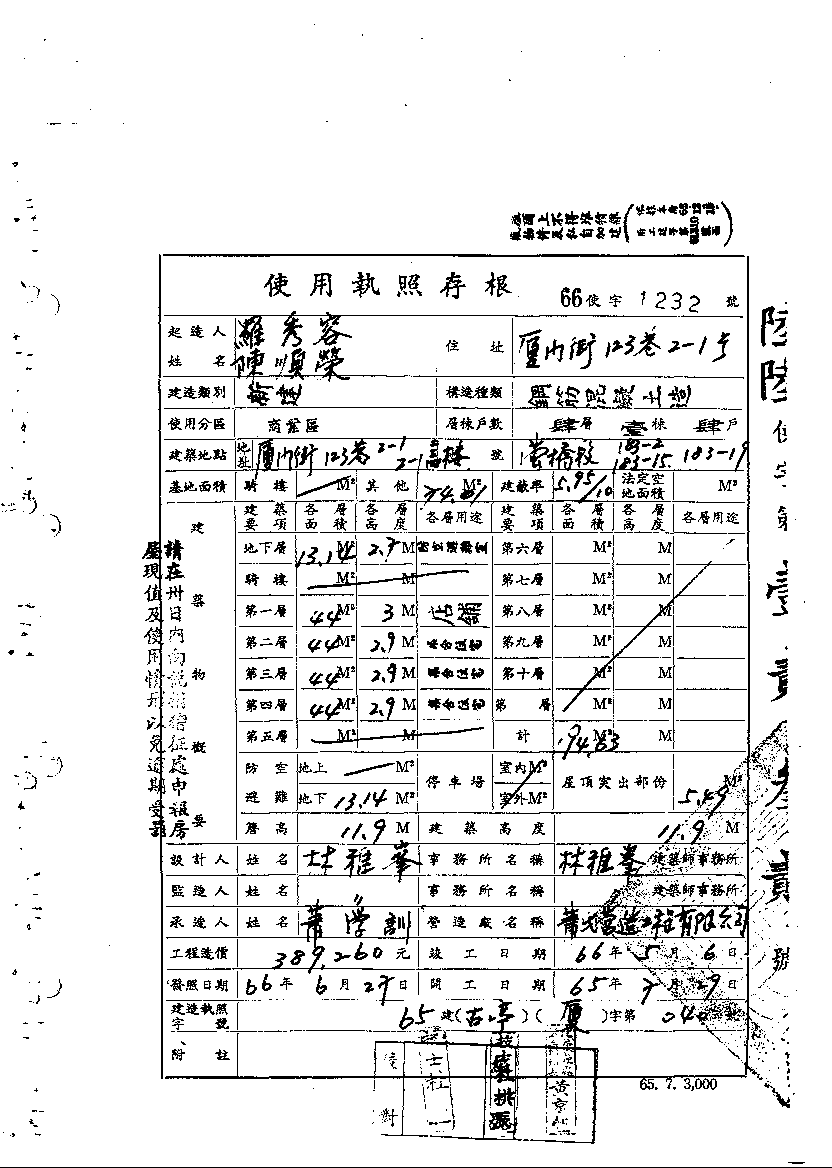 使用執照存根
66使字1232號
起造人姓名 羅秀容 陳順榮 住址 厦門街123巷2-1号
建造類別 新建 構造種類 鋼筋混凝土造
使用分區 商業區 層棟戶數 肆層壹棟肆戶
建築地點 地址 厦門街123巷2-1 號 183-2 183-15 183-19
基地面積 騎樓 M² 其他 M² 建蔽率 5.95/10 法定空地面積 M²
建築物概要 建築要項 各層面積 各層高度 各層用途 建築要項 各層面積 各層高度 各層用途
地下層 13.14 M² 2.7 M 第六層 M² M
騎樓 M² M 第七層 M² M
第一層 44 M² 3 M 店舖 第八層 M² M
第二層 44 M² 2.9 M 集合住宅 第九層 M² M
第三層 44 M² 2.9 M 集合住宅 第十層 M² M
第四層 44 M² 2.9 M 集合住宅 第 層 M² M
第五層 M² M 計 194.63 M² M
防空避難 地上 M² 地下 13.14 M² 停車場 室內 M² 室外 M² 屋頂突出部份 M²
簷高 11.9 M 建築高度 11.9 M
設計人 姓名 林雅峯 事務所名稱 林雅峯 建築師事務所
監造人 姓名 〃 事務所名稱 建築師事務所
承造人 姓名 蕭學訓 營造廠名稱 營造工程有限公司
工程造價 389,260元 竣工日期 66年5月6日
發照日期 66年6月27日 開工日期 65年7月29日
建造執照字號 65建(古亭)(厦)字第040號
附註
65. 7. 3,000
校對
請在卅日內向稅捐稽征處申報房
屋現值及使用情形以免逾期受罰
陸陸使字第壹貳叁貳號